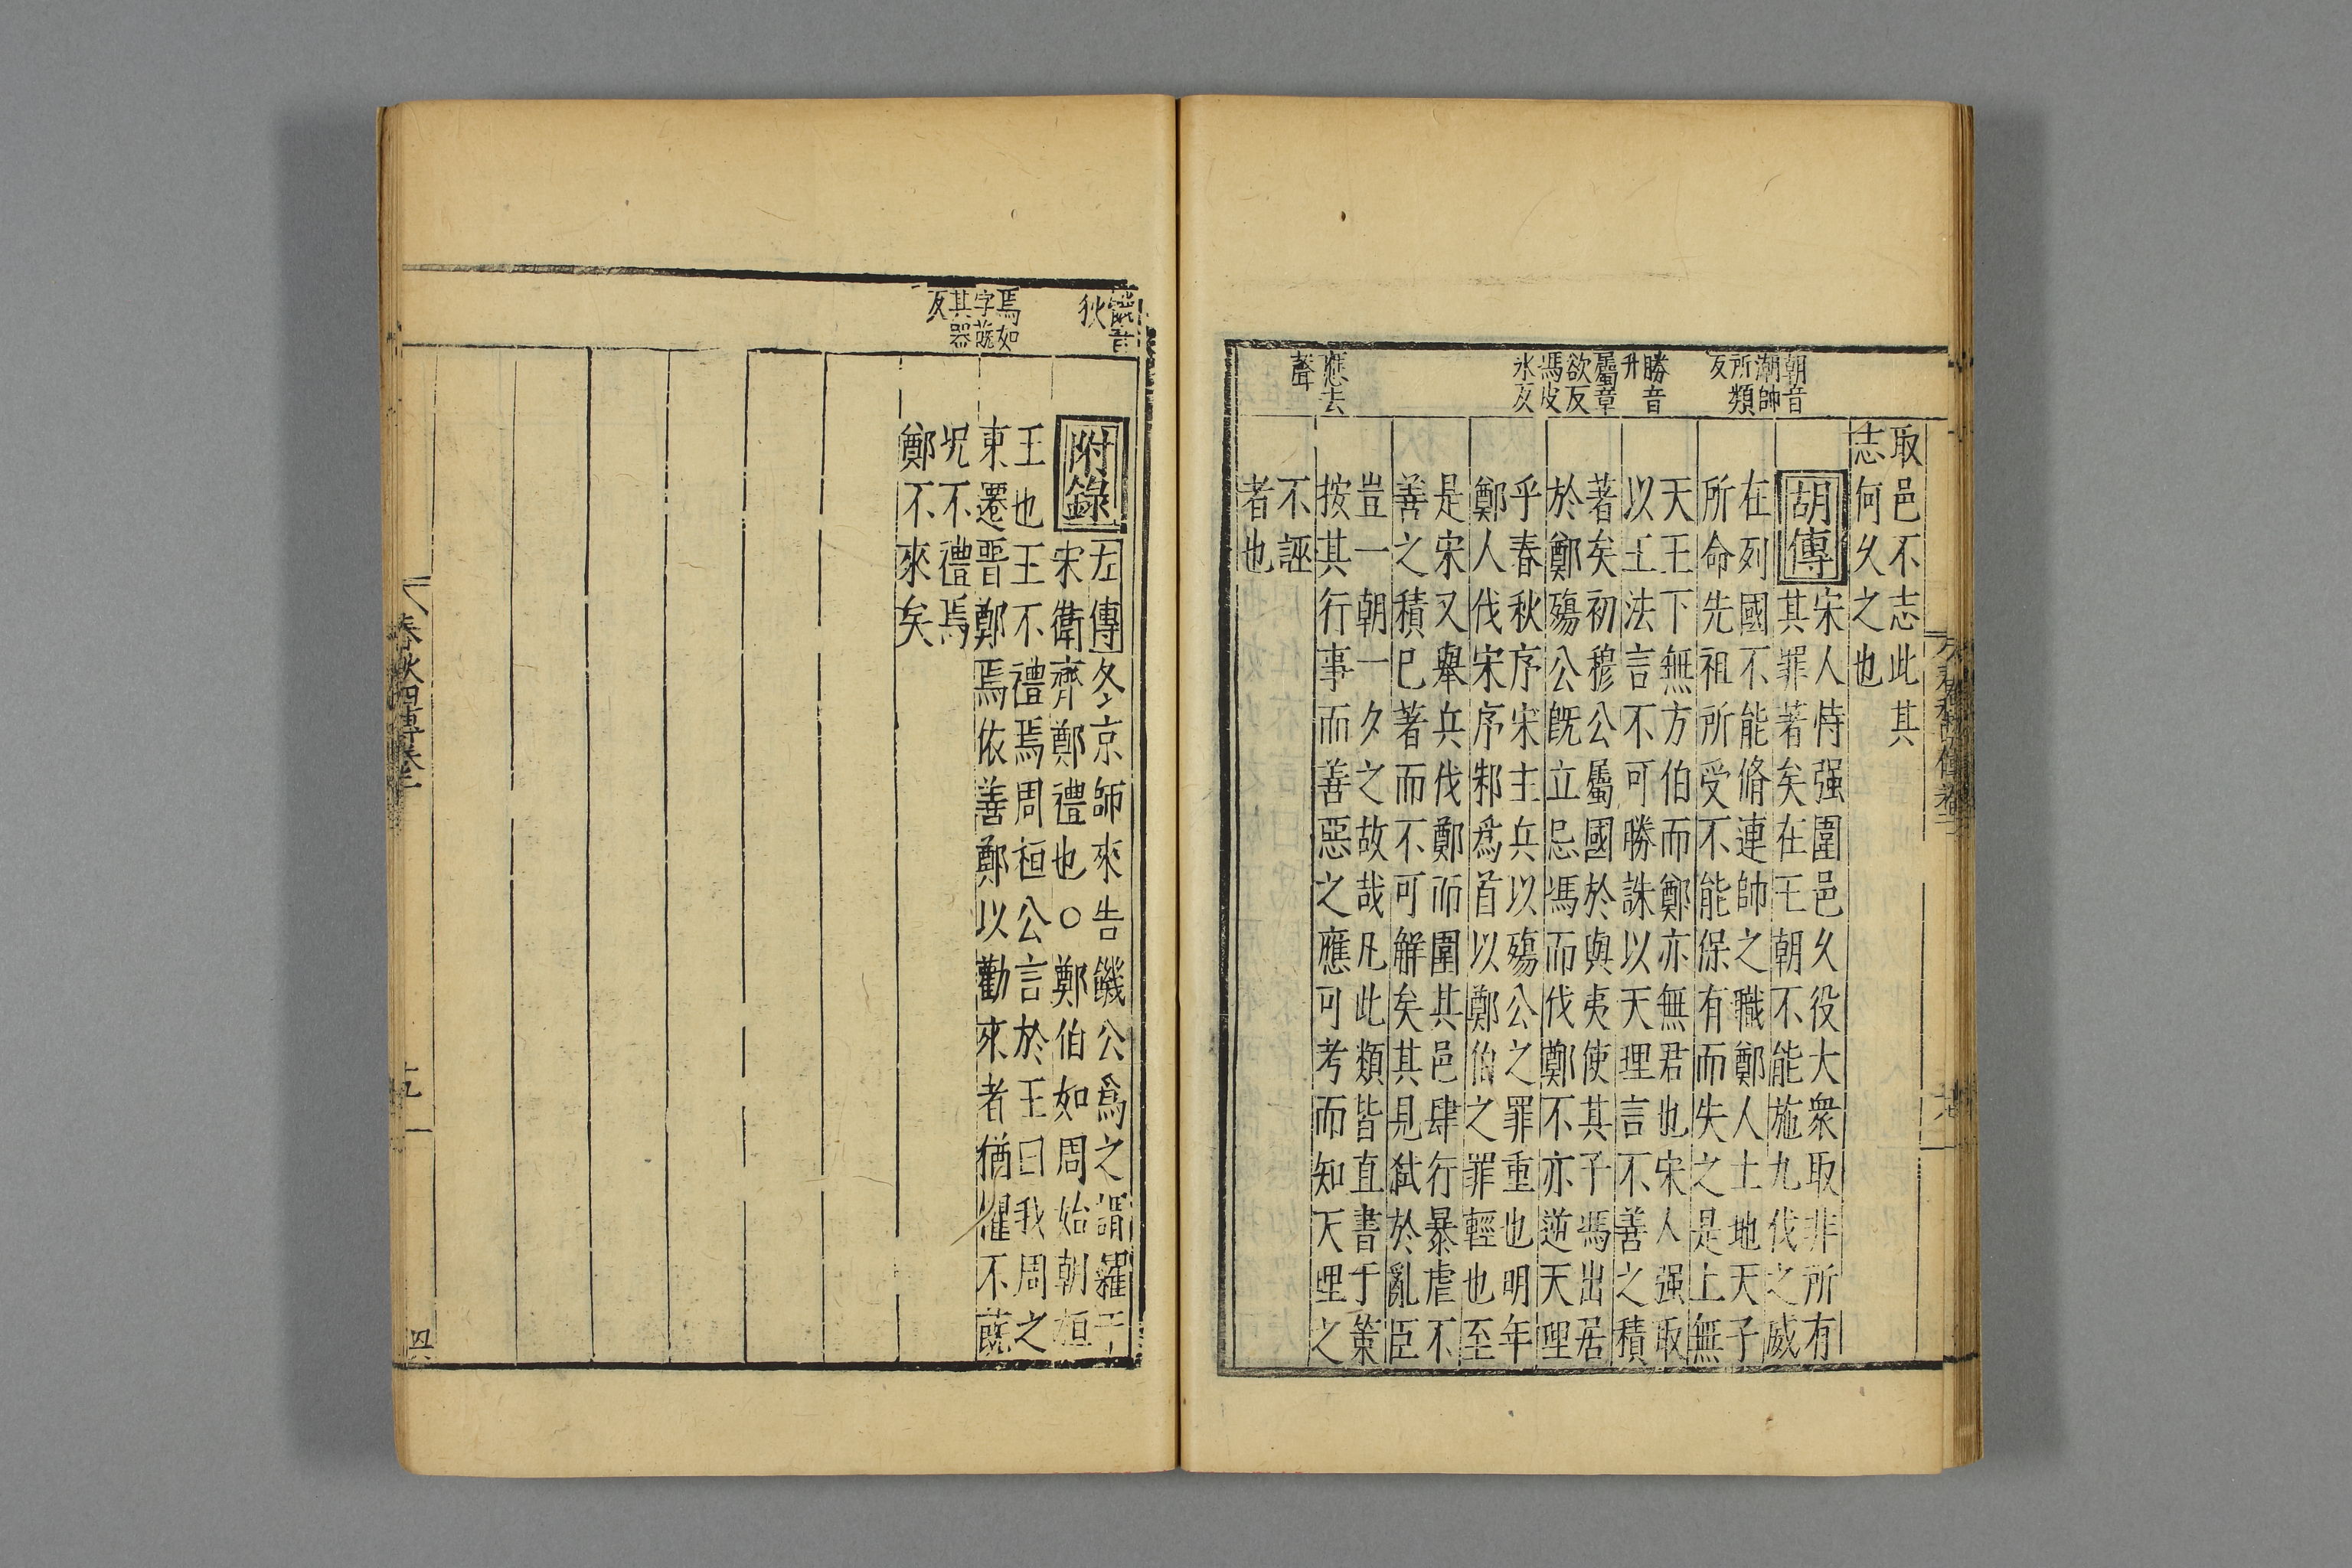 朝音
潮帥
所類
反
勝音
升
屬章
欲反
馮皮
氷反
應去
聲
取邑不志此其
志何久之也
胡傳
宋人恃强圍邑久役大衆取非所有
其罪著矣在王朝不能施九伐之威
在列國不能脩連帥之職鄭人土地天子
所命先祖所受不能保有而失之是上無
天王下無方伯而鄭亦無君也宋人强取
以王法言不可勝誅以天理言不善之積
著矣初穆公屬國於與夷使其子馮出居
於鄭殤公旣立忌馮而伐鄭不亦逆天理
乎春秋序宋主兵以殤公之罪重也明年
鄭人伐宋序邾爲首以鄭伯之罪輕也至
是宋又舉兵伐鄭而圍其邑肆行暴虐不
善之積已著而不可解矣其見弑於亂臣
豈一朝一夕之故哉凡此類皆直書于策
按其行事而善惡之應可考而知天理之
不誣
者也
音
狄
焉如
字蔇
其器
反
附錄
左傳冬京師來告饑公爲之請糴于
宋衛齊鄭禮也○鄭伯如周始朝桓
王也王不禮焉周桓公言於王曰我周之
東遷晉鄭焉依善鄭以勸來者猶懼不蔇
况不禮焉
鄭不來矣
春秋四傳卷二
五
四